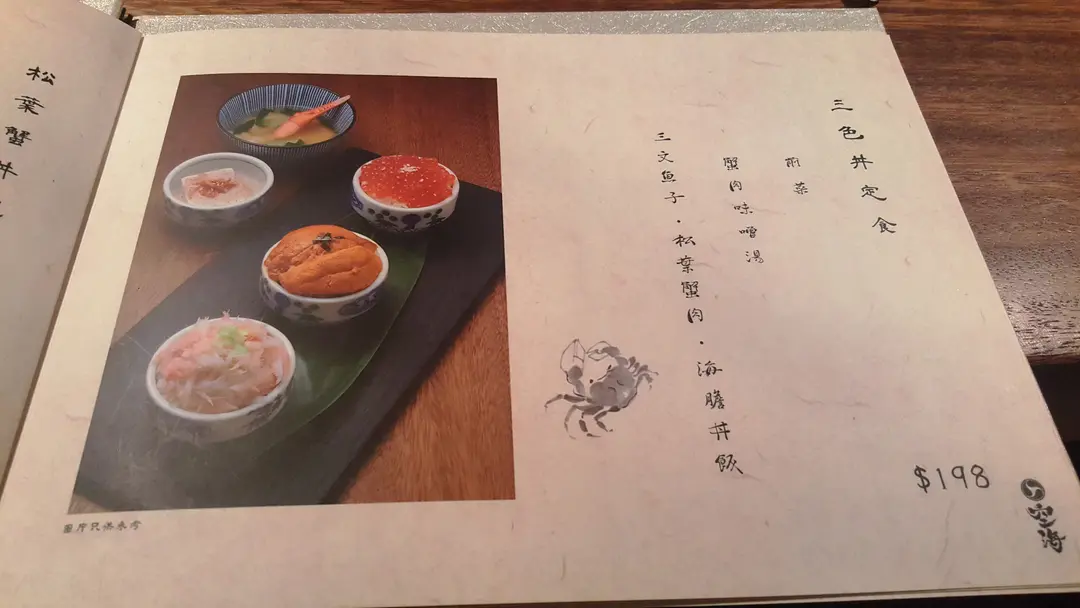 三色丼定食
前菜
蟹肉味噌湯
三文魚子・松葉蟹肉・海膽丼飯
$198
空海
圖片只供參考
松葉蟹丼